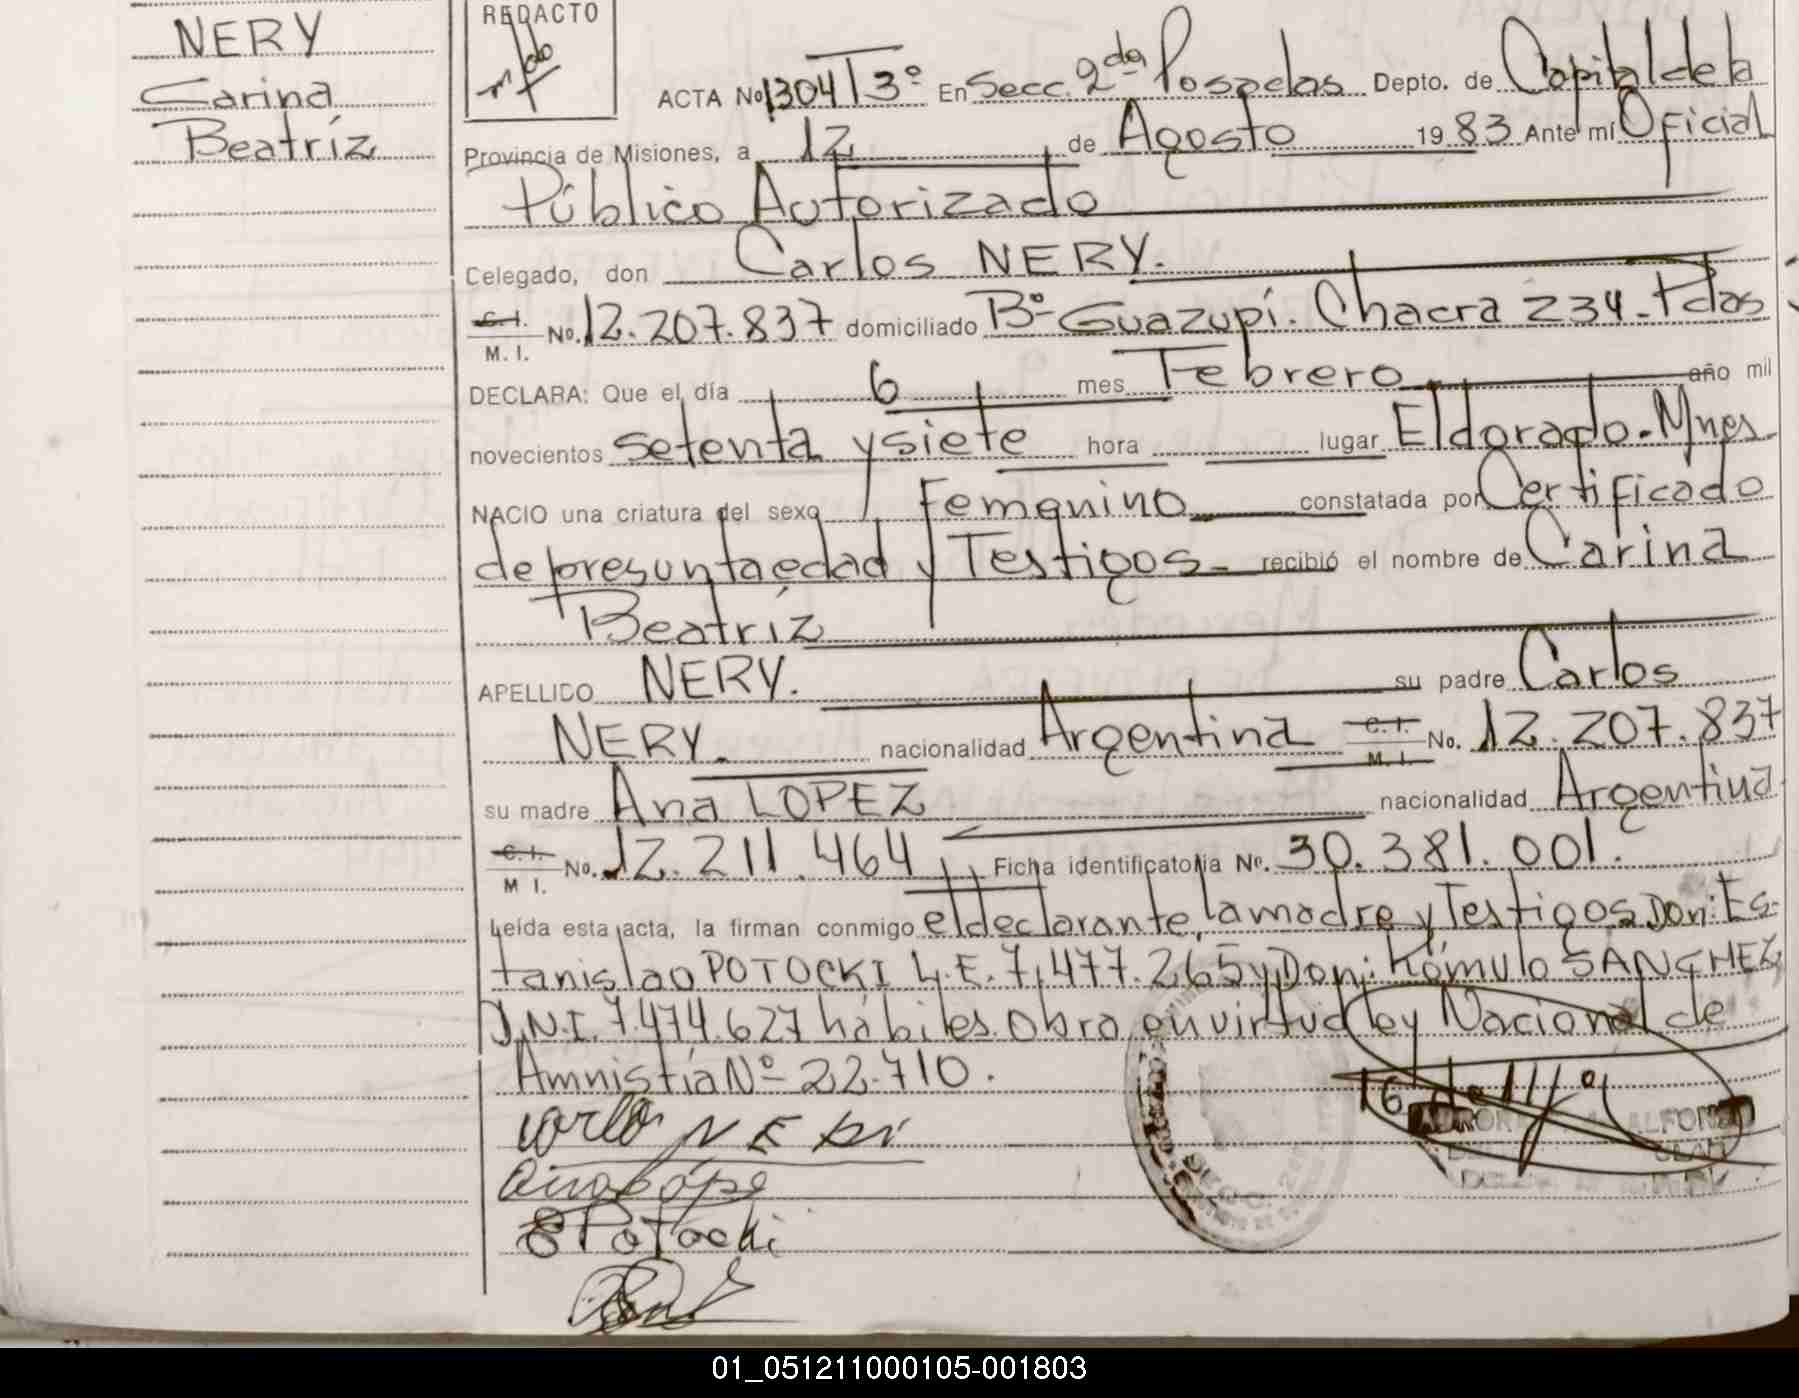 NERY
Carina
Beatríz
REDACTO
ACTA No 1304 T 3º En Secc. 2da Posadas Depto. de Capital de la
Provincia de Misiones, a 12 de Agosto 1983 Ante mí Oficial
Público Autorizado
Celegado, don Carlos NERY.
C.I. M.I. No. 12.207.837 domiciliado Bº Guazupí. Chacra 234. Pdas
DECLARA: Que el día 6 mes Febrero año mil
novecientos setenta y siete hora lugar Eldorado. Mnes
NACIO una criatura del sexo Femenino constatada por Certificado
de presunta edad y Testigos recibió el nombre de Carina
Beatríz
APELLIDO NERY. su padre Carlos
NERY. nacionalidad Argentina C.I. M.I. No. 12.207.837
su madre Ana LOPEZ nacionalidad Argentina
C.I. M I. No. 12.211.464 Ficha identificatoria Nº. 30.381.001.
Leída esta acta, la firman conmigo el declarante, la madre y Testigos Don: Es-
tanislao POTOCKI L.E. 7.477.265 y Don: Rómulo SANCHEZ
D.N.I. 7.474.627 hábiles. Obra en virtud ley Nacional de
Amnistía Nº 22.710.
Carlos NERI
Ana Lópe
E Potocki
SECC. 2da
ALFONZO
01_051211000105-001803